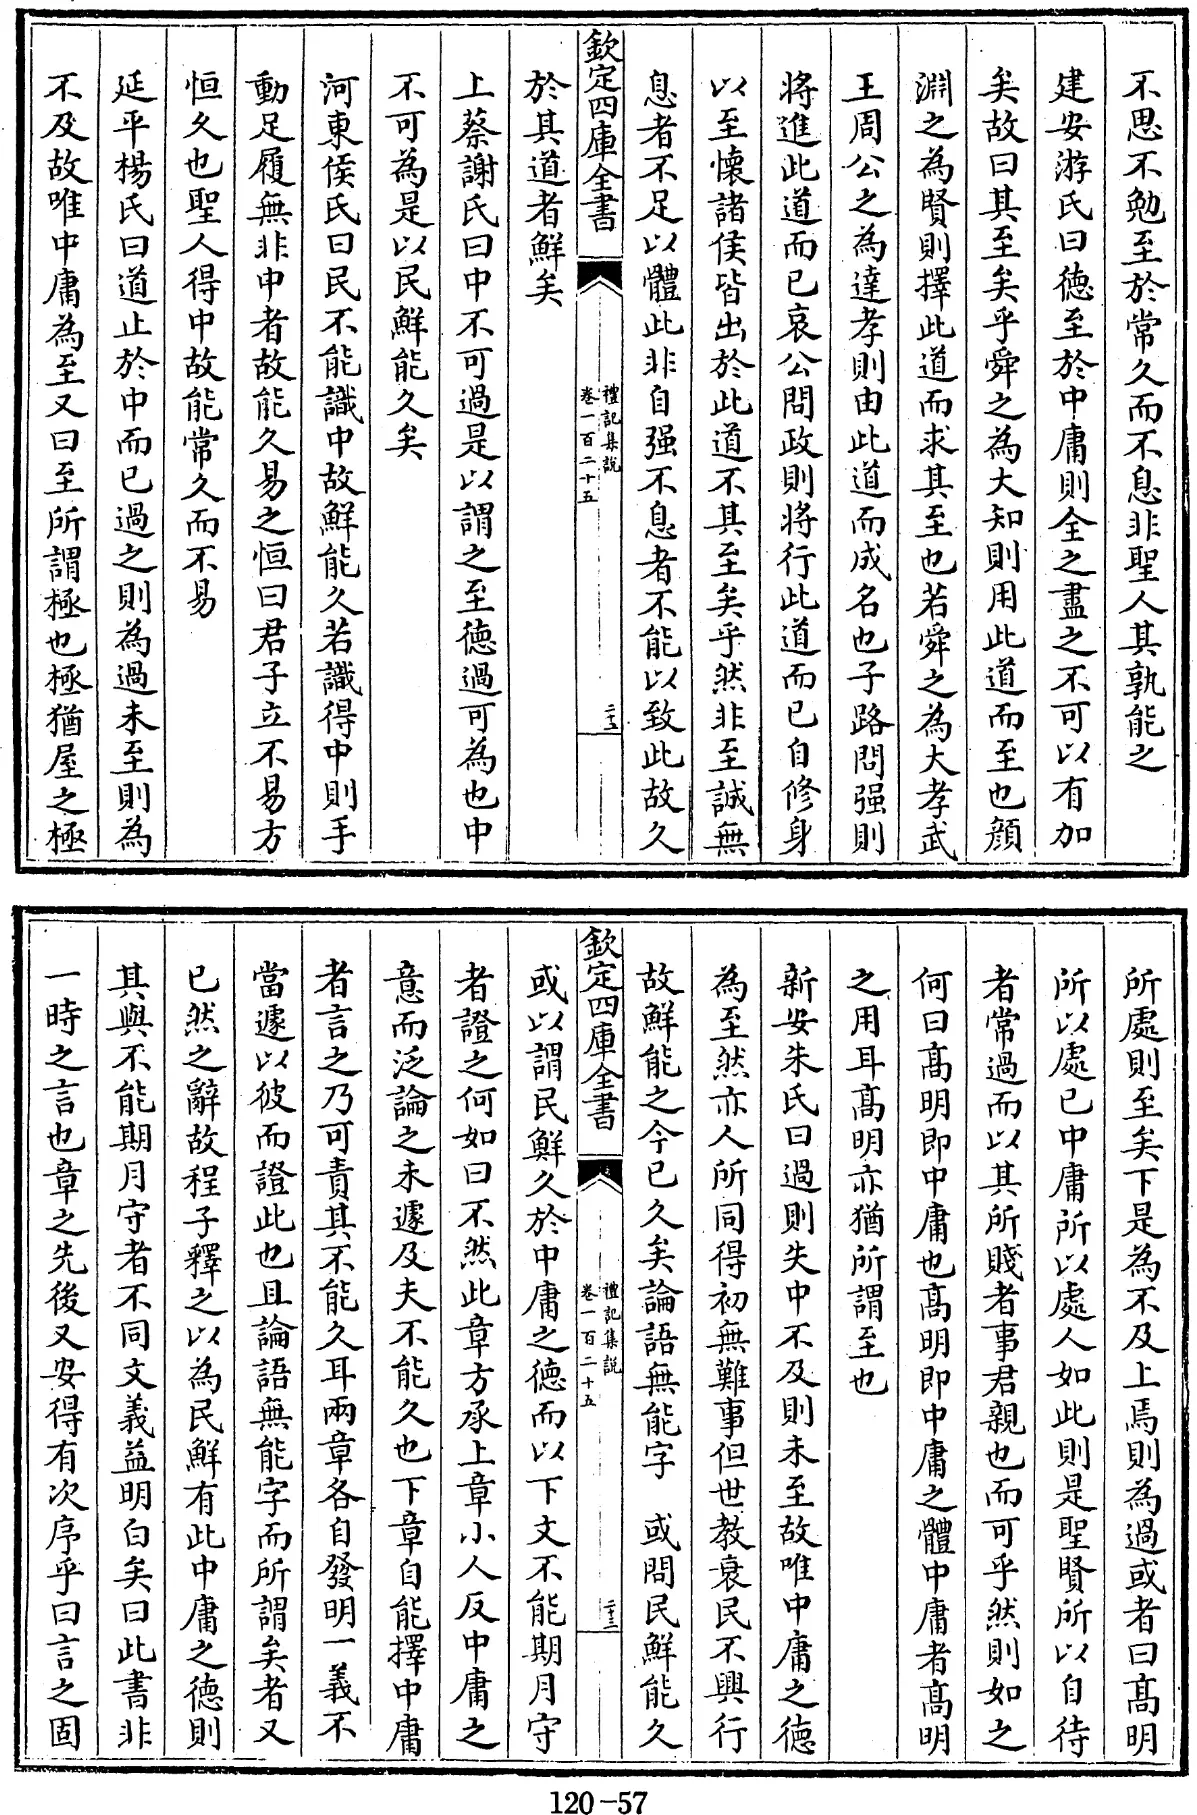 不思不勉至於常久而不息非聖人其孰能之
建安游氏曰德至於中庸則全之盡之不可以有加
矣故曰其至矣乎舜之為大知則用此道而至也顔
淵之為賢則擇此道而求其至也若舜之為大孝武
王周公之為達孝則由此道而成名也子路問强則
將進此道而已哀公問政則將行此道而已自修身
以至懷諸侯皆出於此道不其至矣乎然非至誠無
息者不足以體此非自强不息者不能以致此故久
欽定四庫全書
禮記集說
卷一百二十五
二十二
於其道者鮮矣
上蔡謝氏曰中不可過是以謂之至德過可為也中
不可為是以民鮮能久矣
河東侯氏曰民不能識中故鮮能久若識得中則手
動足履無非中者故能久易之恒曰君子立不易方
恒久也聖人得中故能常久而不易
延平楊氏曰道止於中而已過之則為過未至則為
不及故唯中庸為至又曰至所謂極也極猶屋之極
所處則至矣下是為不及上焉則為過或者曰髙明
所以處已中庸所以處人如此則是聖賢所以自待
者常過而以其所賤者事君親也而可乎然則如之
何曰髙明即中庸也髙明即中庸之體中庸者髙明
之用耳髙明亦猶所謂至也
新安朱氏曰過則失中不及則未至故唯中庸之德
為至然亦人所同得初無難事但世教衰民不興行
故鮮能之今已久矣論語無能字　或問民鮮能久
欽定四庫全書
禮記集說
卷一百二十五
二十三
或以謂民鮮久於中庸之德而以下文不能期月守
者證之何如曰不然此章方承上章小人反中庸之
意而泛論之未遽及夫不能久也下章自能擇中庸
者言之乃可責其不能久耳兩章各自發明一義不
當遽以彼而證此也且論語無能字而所謂矣者又
已然之辭故程子釋之以為民鮮有此中庸之德則
其與不能期月守者不同文義益明白矣曰此書非
一時之言也章之先後又安得有次序乎曰言之固
120-57